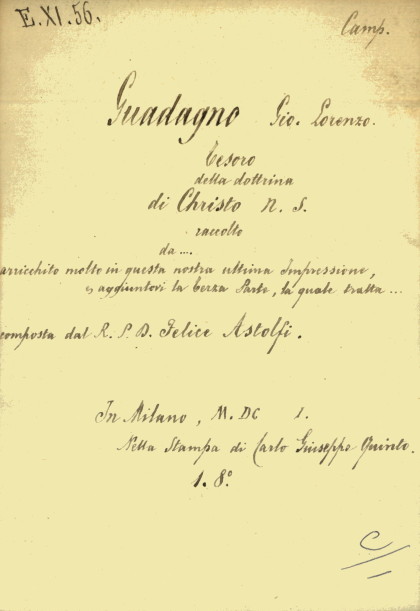 E.XI.56.
Camp.
Guadagno Gio. Lorenzo.
Tesoro
della dottrina
di Christo N. S.
raccolto
da ....
arricchito molto in questa nostra ultima Impressione,
aggiuntovi la terza Parte, la quale tratta ...
composta dal R. P. D. Felice Astolfi.
In Milano, M. DC 1.
Nella Stampa di Carlo Giuseppe Quinto.
1. 8°
C